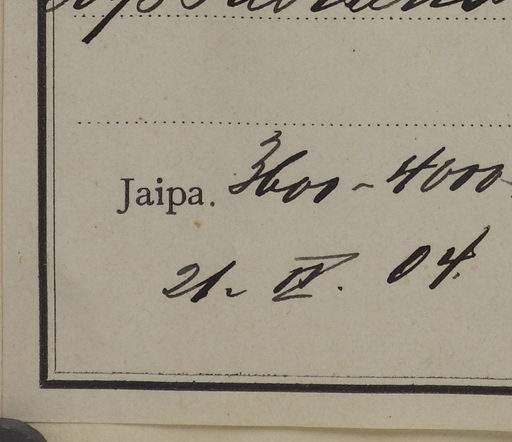 Jaipa. 3600 - 4000
21. IV. 04.